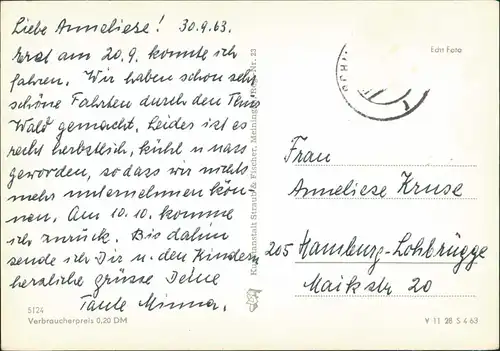 Liebe Anneliese! 30.9.63.
Erst am 20.9. konnte ich
fahren. Wir haben schon sehr
schöne Fahrten durch den Thür.
Wald gemacht. Leider ist es
recht herbstlich, kühl u nass
geworden, so dass wir nichts
mehr unternehmen kön-
nen. Am 10.10. komme
ich zurück. Bis dahin
sende ich Dir u. den Kindern
herzliche Grüsse Deine
Tante Minna.
5124
Verbraucherpreis 0,20 DM
Kunstanstalt Straub & Fischer, Meiningen Reg. Nr. 23
Echt Foto
Frau
Anneliese Kruse
205 Hamburg-Lohbrügge
Maikstr 20
V 11 28 S 4 63